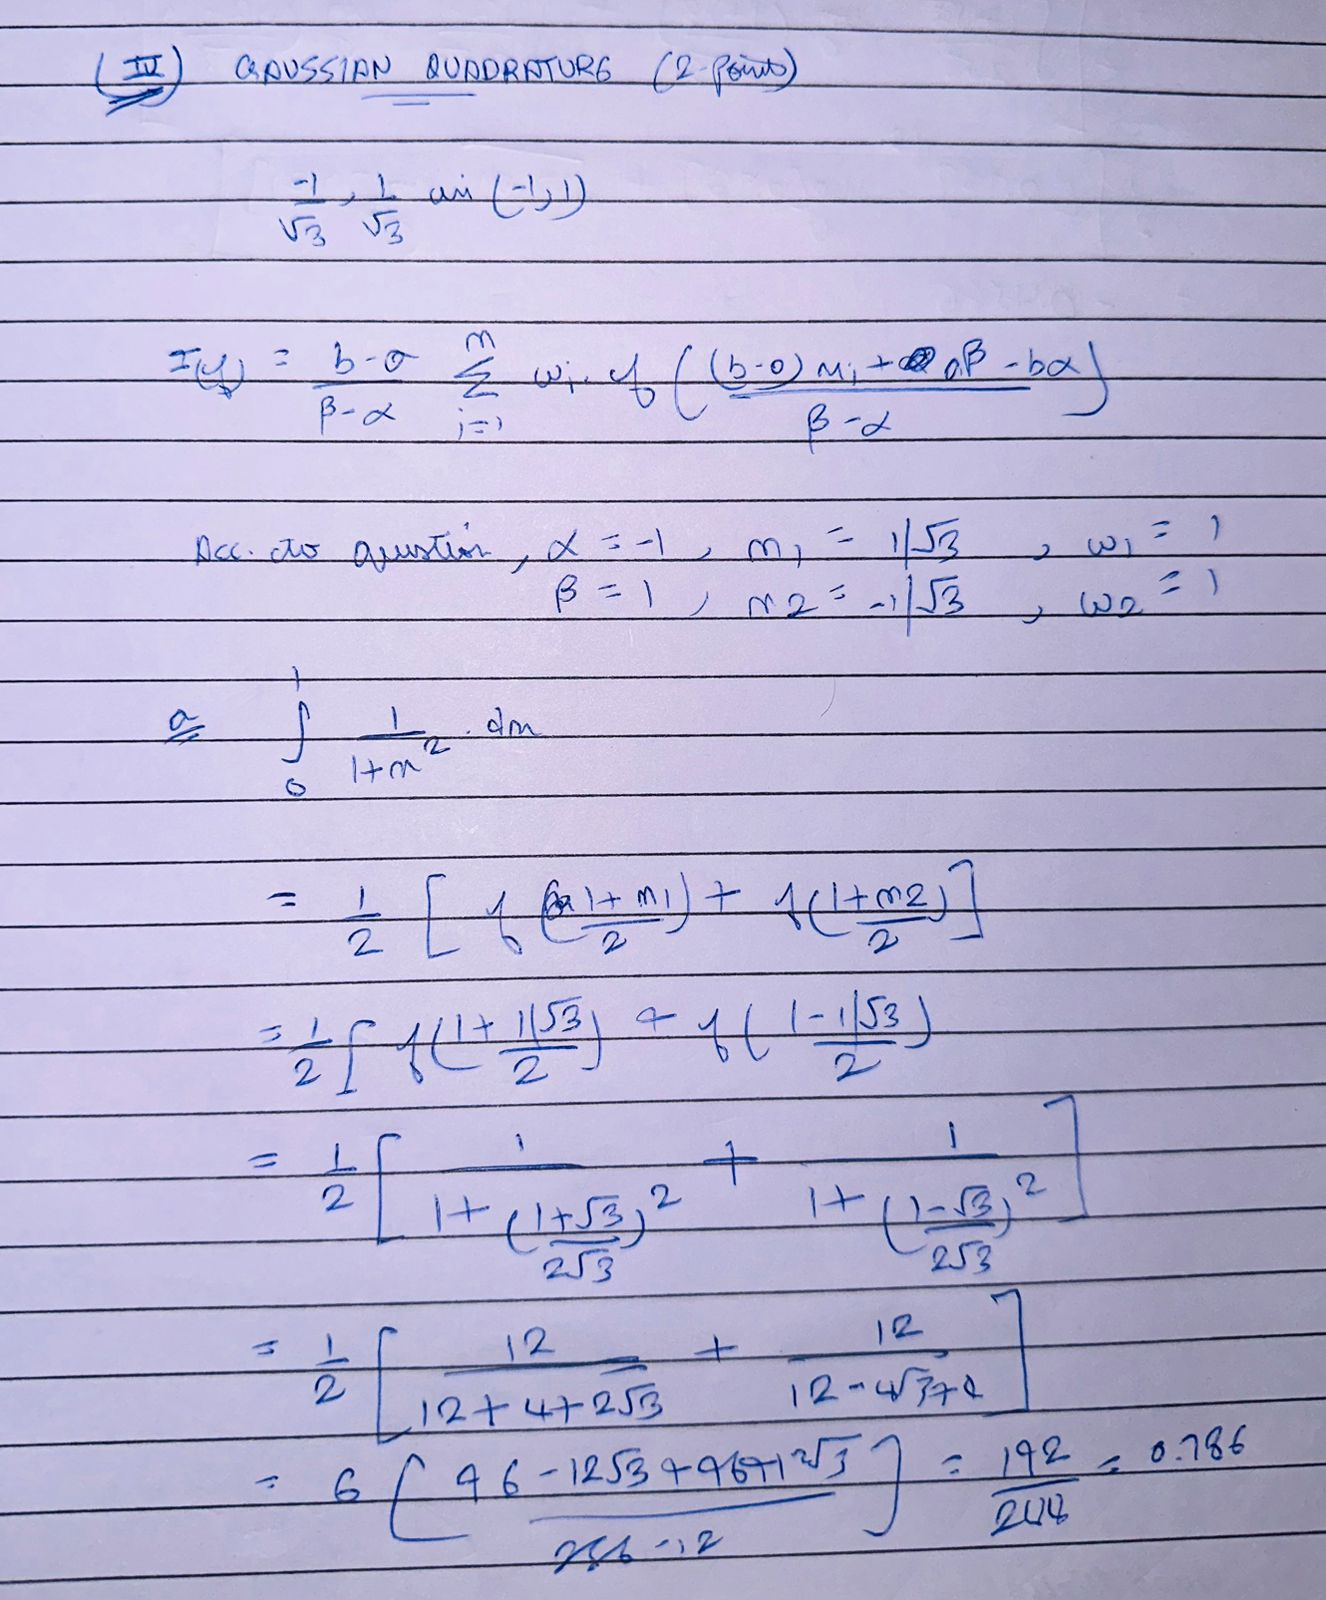 (IV) GAUSSIAN QUADRATURE (2-points)
-1/√3, 1/√3 in (-1, 1)
I(f) = (b-a)/(β-α) Σ_{i=1}^{n} wi. f( ((b-a) xi + aβ - bα)/(β-α) )
Acc. to question, α = -1, x1 = 1/√3, w1 = 1
β = 1, x2 = -1/√3, w2 = 1
a ∫_0^1 1/(1+x^2) . dx
= 1/2 [ f((1+x1)/2) + f((1+x2)/2) ]
= 1/2 [ f((1+1/√3)/2) + f((1-1/√3)/2)
= 1/2 [ 1/(1+((1+√3)/(2√3))^2) + 1/(1+((1-√3)/(2√3))^2) ]
= 1/2 [ 12/(12+4+2√3) + 12/(12-4√3+4) ]
= 6 [ (96-12√3+96+12√3)/(256-12) ] = 192/244 = 0.786